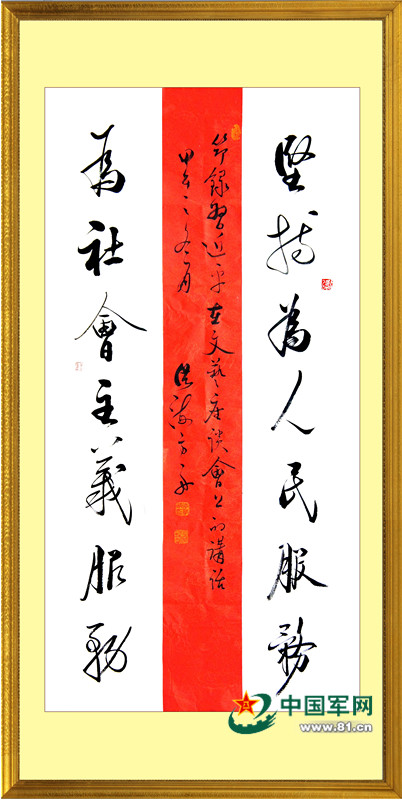 堅持為人民服務
節錄習近平在文藝座談會上的講話
甲午之冬月
為社會主義服務
中国军网
www.81.cn